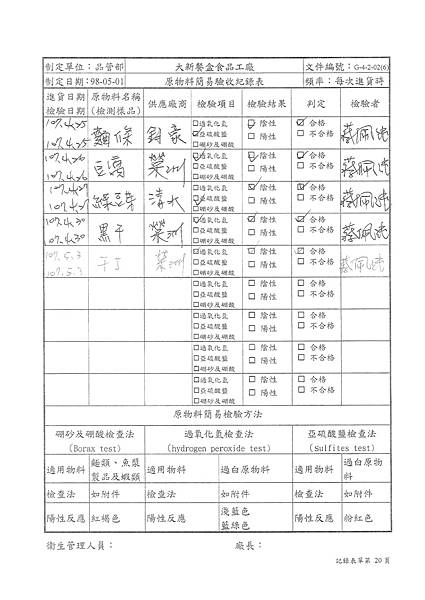 制定單位：品管部 大新餐盒食品工廠 文件編號：G-4-2-02(6)
制定日期：98-05-01 原物料簡易驗收紀錄表 頻率：每次進貨時
進貨日期 檢驗日期 原物料名稱 (檢測樣品) 供應廠商 檢驗項目 檢驗結果 判定 檢驗者
107.4.25 107.4.25 麵條 □過氧化氫 ☑亞硫酸鹽 □硼砂及硼酸 ☑陰性 □陽性 ☑合格 □不合格 蔡佩純
107.4.26 107.4.26 豆腐 榮洲 ☑過氧化氫 □亞硫酸鹽 □硼砂及硼酸 ☑陰性 □陽性 ☑合格 □不合格 蔡佩純
107.4.27 107.4.27 綠豆芽 清水 □過氧化氫 ☑亞硫酸鹽 □硼砂及硼酸 ☑陰性 □陽性 ☑合格 □不合格 蔡佩純
107.4.30 107.4.30 黑干 榮洲 ☑過氧化氫 □亞硫酸鹽 □硼砂及硼酸 ☑陰性 □陽性 ☑合格 □不合格 蔡佩純
107.5.3 107.5.3 干丁 榮洲 ☑過氧化氫 □亞硫酸鹽 □硼砂及硼酸 ☑陰性 □陽性 ☑合格 □不合格 蔡佩純
□過氧化氫 □亞硫酸鹽 □硼砂及硼酸 □陰性 □陽性 □合格 □不合格
□過氧化氫 □亞硫酸鹽 □硼砂及硼酸 □陰性 □陽性 □合格 □不合格
□過氧化氫 □亞硫酸鹽 □硼砂及硼酸 □陰性 □陽性 □合格 □不合格
□過氧化氫 □亞硫酸鹽 □硼砂及硼酸 □陰性 □陽性 □合格 □不合格
原物料簡易檢驗方法
硼砂及硼酸檢查法 過氧化氫檢查法 亞硫酸鹽檢查法
(Borax test) (hydrogen peroxide test) (Sulfites test)
適用物料 麵類、魚漿製品及蝦類 適用物料 過白原物料 適用物料 過白原物料
檢查法 如附件 檢查法 如附件 檢查法 如附件
陽性反應 紅褐色 陽性反應 淺藍色 藍綠色 陽性反應 粉紅色
衛生管理人員： 廠長：
記錄表單第 20 頁